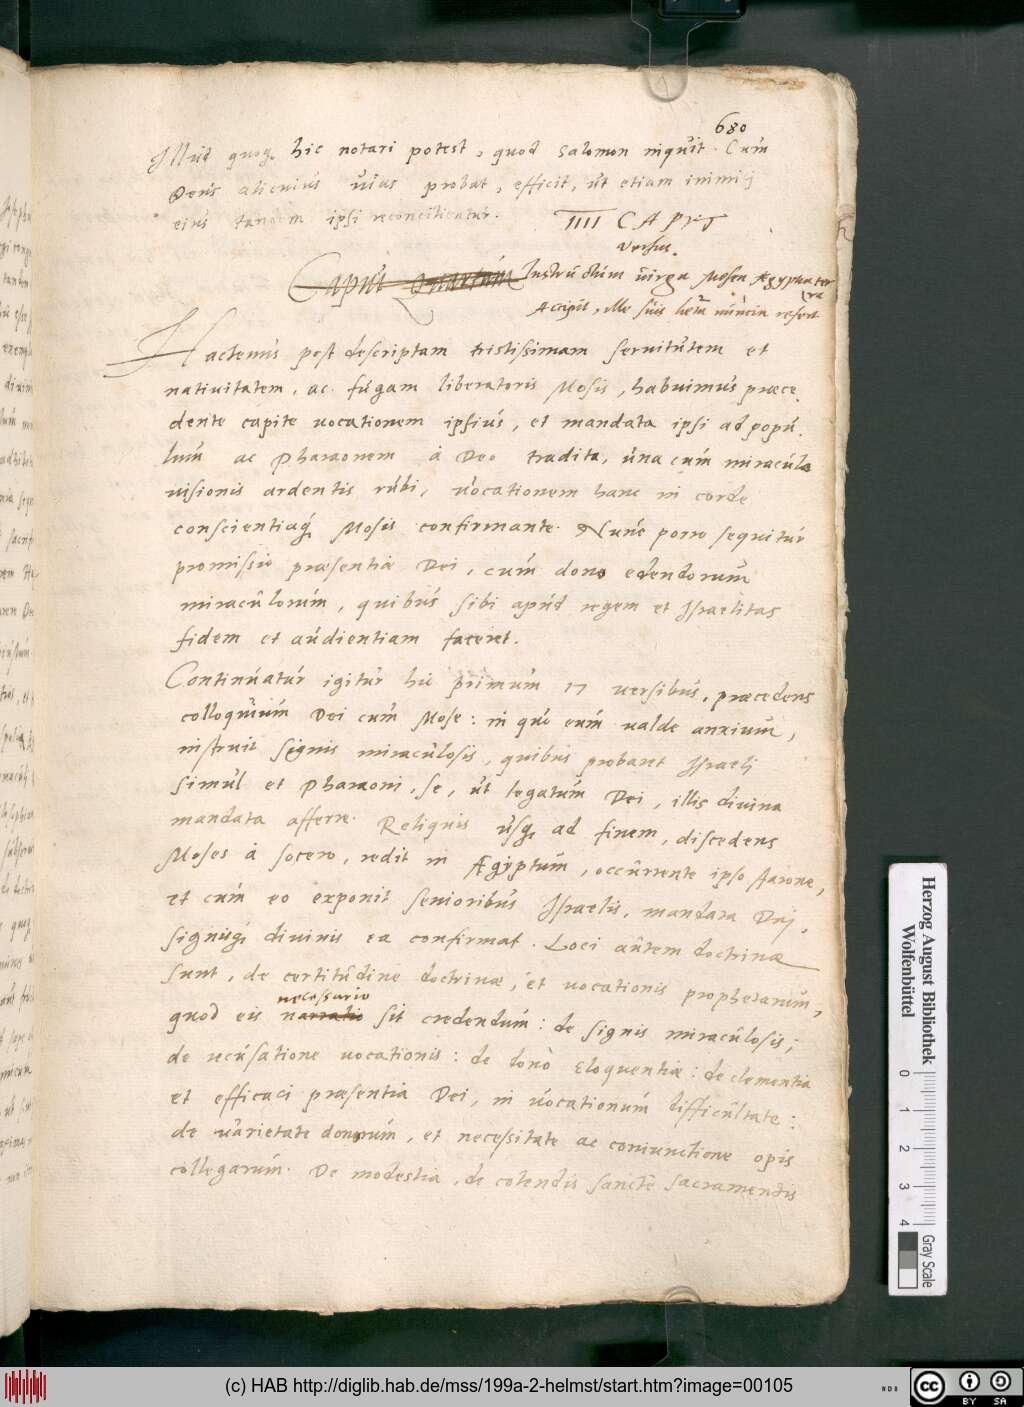 680
Illud quoq; hic notari potest, quod Salomon inquit. Cum
Deus alicuius uias probat, efficit, ut etiam inimicj
eius tandem ipsi reconcilientur.
IIII CAPVT
Versus.
Caput Quartum Instructum uirga Mosen Ægyptia terra
Accipit, ille suis nuncia refert
Hactenus post descriptam tristissimam seruitutem et
natiuitatem, ac fugam liberatoris Mosis, habuimus præce
dente capite uocationem ipsius, et mandata ipsi ad popu
lum ac Pharaonem à Deo tradita, una cum miraculo
uisionis ardentis rubi, uocationem hanc in corde
conscientiaq; Mosis confirmante. Nunc porro sequitur
promissio præsentiæ Dei, cum dono edendorum
miraculorum, quibus sibi apud regem et Israelitas
fidem et audientiam faceret.
Continuatur igitur hic primum 17 uersibus, præcedens
colloquium Dei cum Mose: in quo eum ualde anxium,
instruit signis miraculosis, quibus probaret Israeli
simul et Pharaoni, se, ut legatum Dei, illis diuina
mandata afferre. Reliquis usq; ad finem, discedens
Moses à socero, redit in Ægyptum, occurrente ipso Aarone,
et cum eo exponit senioribus Israelis, mandata Dej,
signisq; diuinis ea confirmat. Loci autem doctrinæ
sunt, de certitudine doctrinæ, et uocationis prophetarum,
necessario
quod eis narratio sit credendum: de signis miraculosis;
de recusatione uocationis: de dono Eloquentiæ: de clementia
et efficaci præsentia Dei, in uocationum difficultate:
de uarietate donorum, et necessitate ac coniunctione opis
collegarum. De modestia, de colendis sanctè sacramentis
Herzog August Bibliothek
Wolfenbüttel
0 1 2 3 4
Gray Scale
(c) HAB http://diglib.hab.de/mss/199a-2-helmst/start.htm?image=00105
cc BY SA